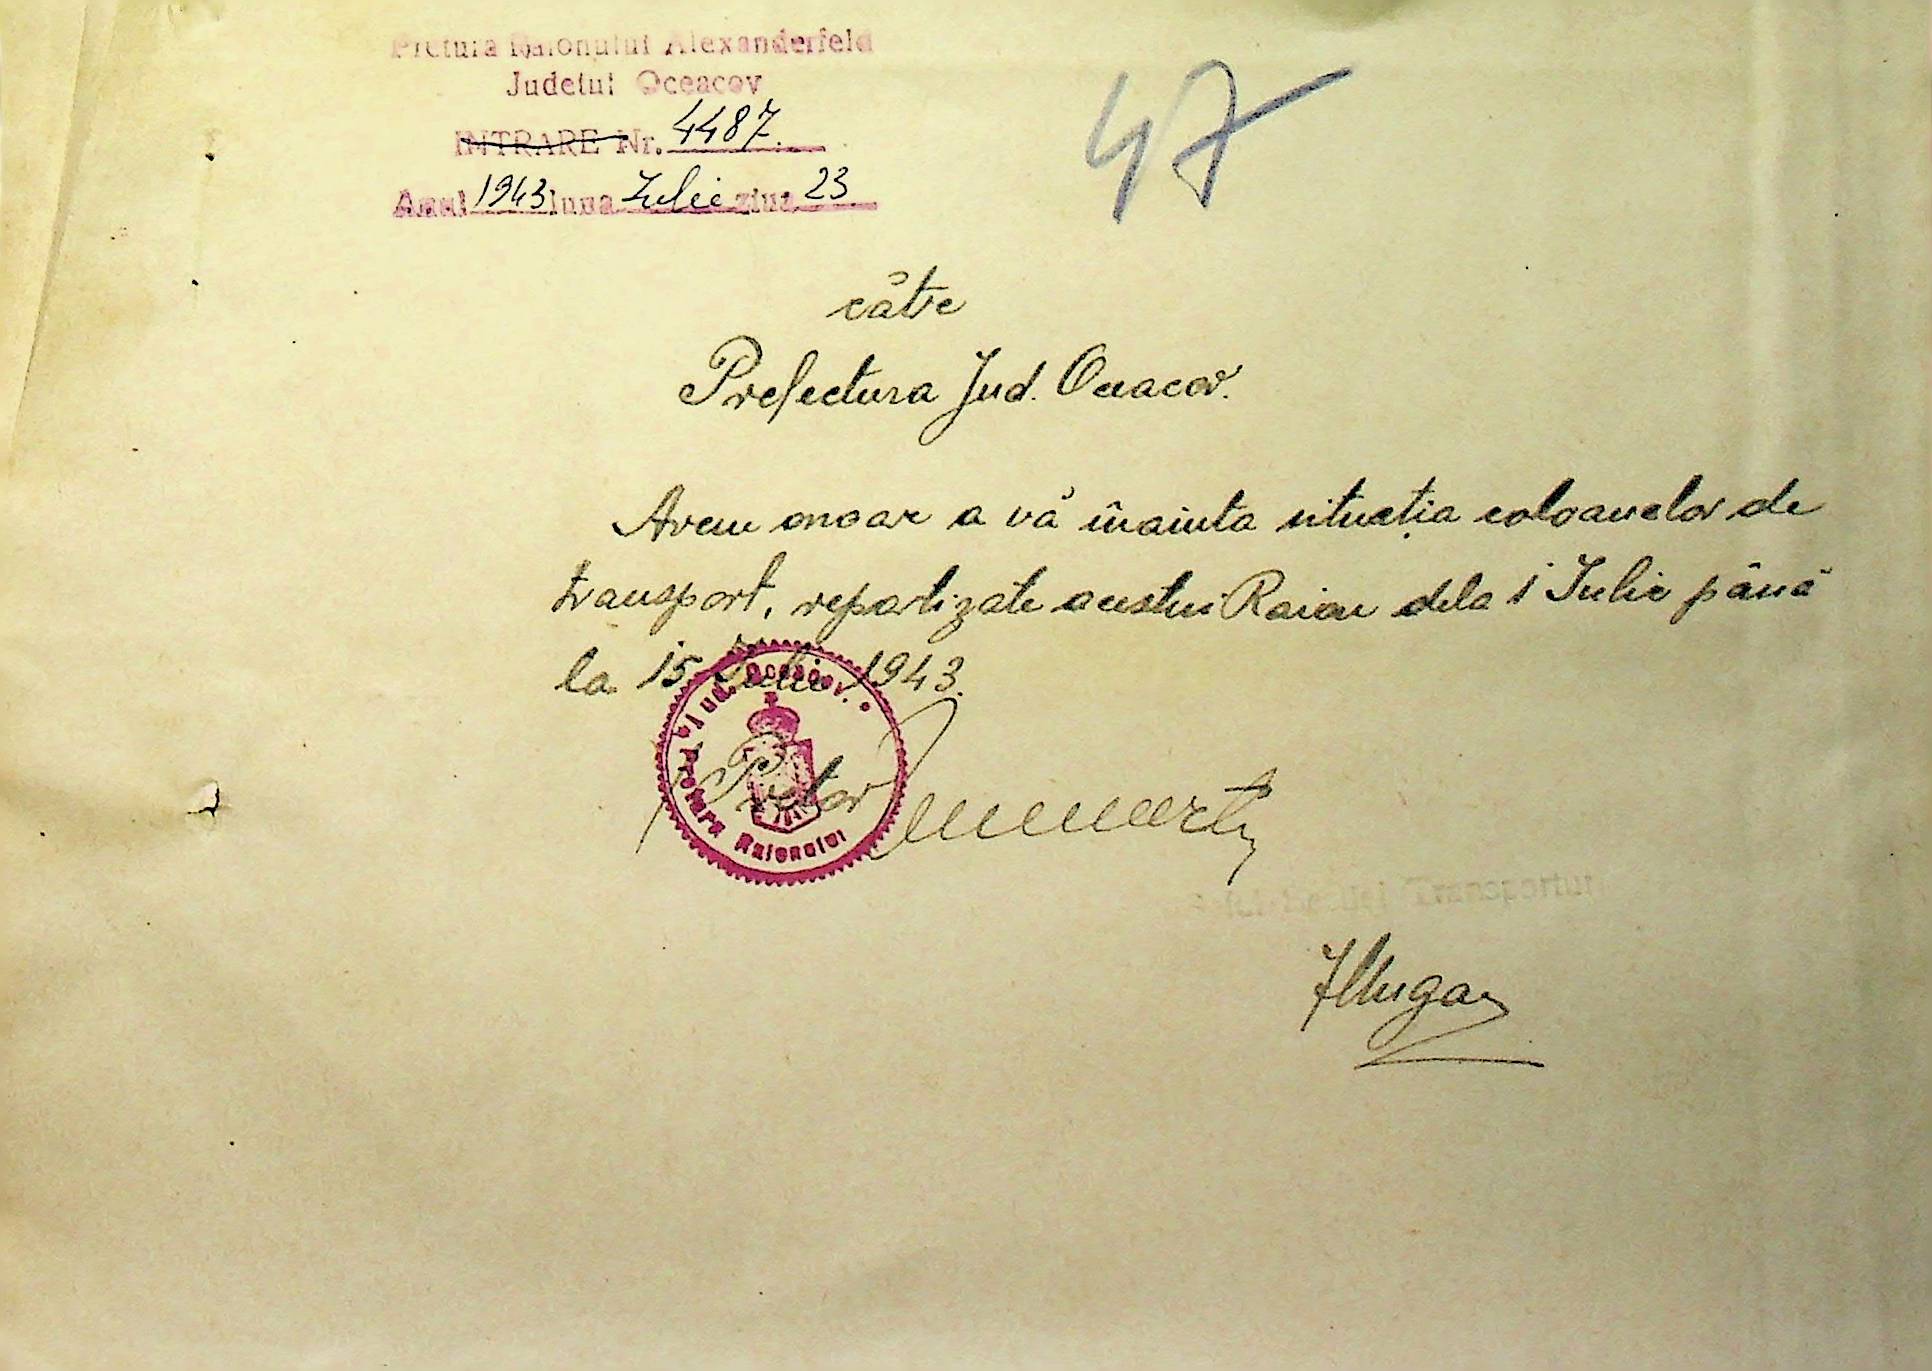 Pretura Raionului Alexanderfeld
Județul Oceacov
INTRARE Nr. 4487.
Anul 1943 luna Iulie ziua 23
47
către
Prefectura Jud. Oceacov.
Avem onoare a vă înainta situația coloanelor de
transport, repartizate acestui Raion dela 1 Iulie până
la 15 Iulie 1943.
Jud. Oceacov.
Pretura Raionului
Pretor
Secției Transporturi